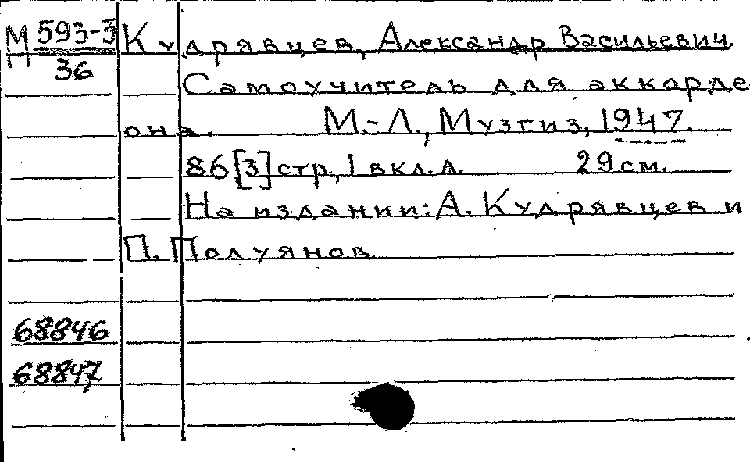 М 593-3 Кудрявцев, Александр Васильевич
36
Самоучитель для аккорде
она. М.-Л., Музгиз, 1947.
86[3] стр., 1 вкл.л. 29 см.
На издании: А. Кудрявцев и
П. Полуянов.
68846
68847